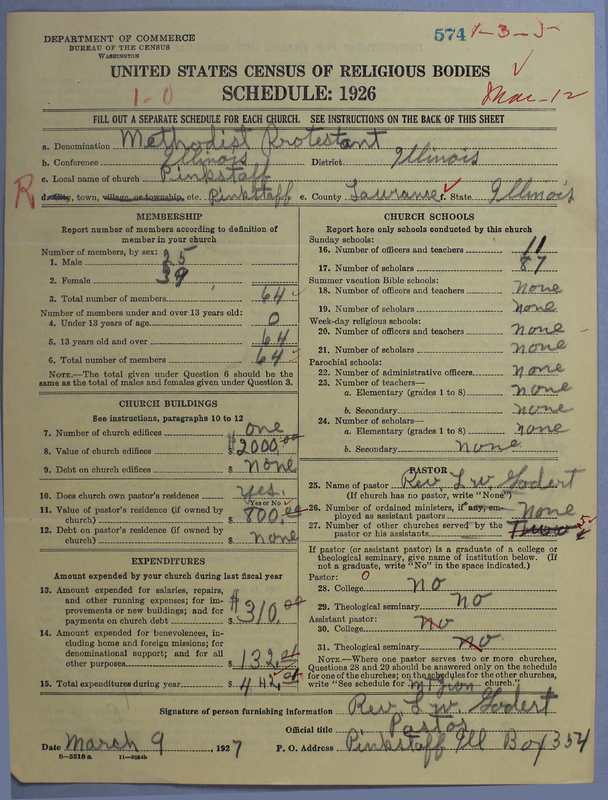 DEPARTMENT OF COMMERCE
BUREAU OF THE CENSUS
WASHINGTON
574 1-3-5-
UNITED STATES CENSUS OF RELIGIOUS BODIES
SCHEDULE: 1926
1-0
Mar-12
FILL OUT A SEPARATE SCHEDULE FOR EACH CHURCH. SEE INSTRUCTIONS ON THE BACK OF THIS SHEET
a. Denomination Methodist Protestant
b. Conference Illinois District Illinois
c. Local name of church Pinkstaff
R d. City, town, village, or township, etc. Pinkstaff e. County Lawrance f. State Illinois
MEMBERSHIP
Report number of members according to definition of
member in your church
Number of members, by sex:
1. Male 25
2. Female 39
3. Total number of members 64
Number of members under and over 13 years old:
4. Under 13 years of age 0
5. 13 years old and over 64
6. Total number of members 64
NOTE.—The total given under Question 6 should be the
same as the total of males and females given under Question 3.
CHURCH BUILDINGS
See instructions, paragraphs 10 to 12
7. Number of church edifices one
8. Value of church edifices $2000.00
9. Debt on church edifices $ none
10. Does church own pastor's residence yes.
(Yes or No)
11. Value of pastor's residence (if owned by
church) $ 800.00
12. Debt on pastor's residence (if owned by
church) $ none
EXPENDITURES
Amount expended by your church during last fiscal year
13. Amount expended for salaries, repairs,
and other running expenses; for im-
provements or new buildings; and for
payments on church debt $310.00
14. Amount expended for benevolences, in-
cluding home and foreign missions; for
denominational support; and for all
other purposes $ 132.01
15. Total expenditures during year $ 442.01
CHURCH SCHOOLS
Report here only schools conducted by this church
Sunday schools:
16. Number of officers and teachers 11
17. Number of scholars 87
Summer vacation Bible schools:
18. Number of officers and teachers none
19. Number of scholars none
Week-day religious schools:
20. Number of officers and teachers none
21. Number of scholars none
Parochial schools:
22. Number of administrative officers none
23. Number of teachers—
a. Elementary (grades 1 to 8) none
b. Secondary none
24. Number of scholars—
a. Elementary (grades 1 to 8) none
b. Secondary none
PASTOR
25. Name of pastor Rev L W Godert
(If church has no pastor, write "None")
26. Number of ordained ministers, if any, em-
ployed as assistant pastors none
27. Number of other churches served by the
pastor or his assistants
If pastor (or assistant pastor) is a graduate of a college or
theological seminary, give name of institution below. (If
not a graduate, write "No" in the space indicated.)
Pastor: 0
28. College no
29. Theological seminary no
Assistant pastor:
30. College no
31. Theological seminary no
NOTE.—Where one pastor serves two or more churches,
Questions 28 and 29 should be answered only on the schedule
for one of the churches; on the schedules for the other churches,
write "See schedule for church."
Signature of person furnishing information Rev. L. W. Godert
Official title Pastor
Date March 9, 1927 P. O. Address Pinkstaff Ill Box 354
8—5518 a 11—9054b